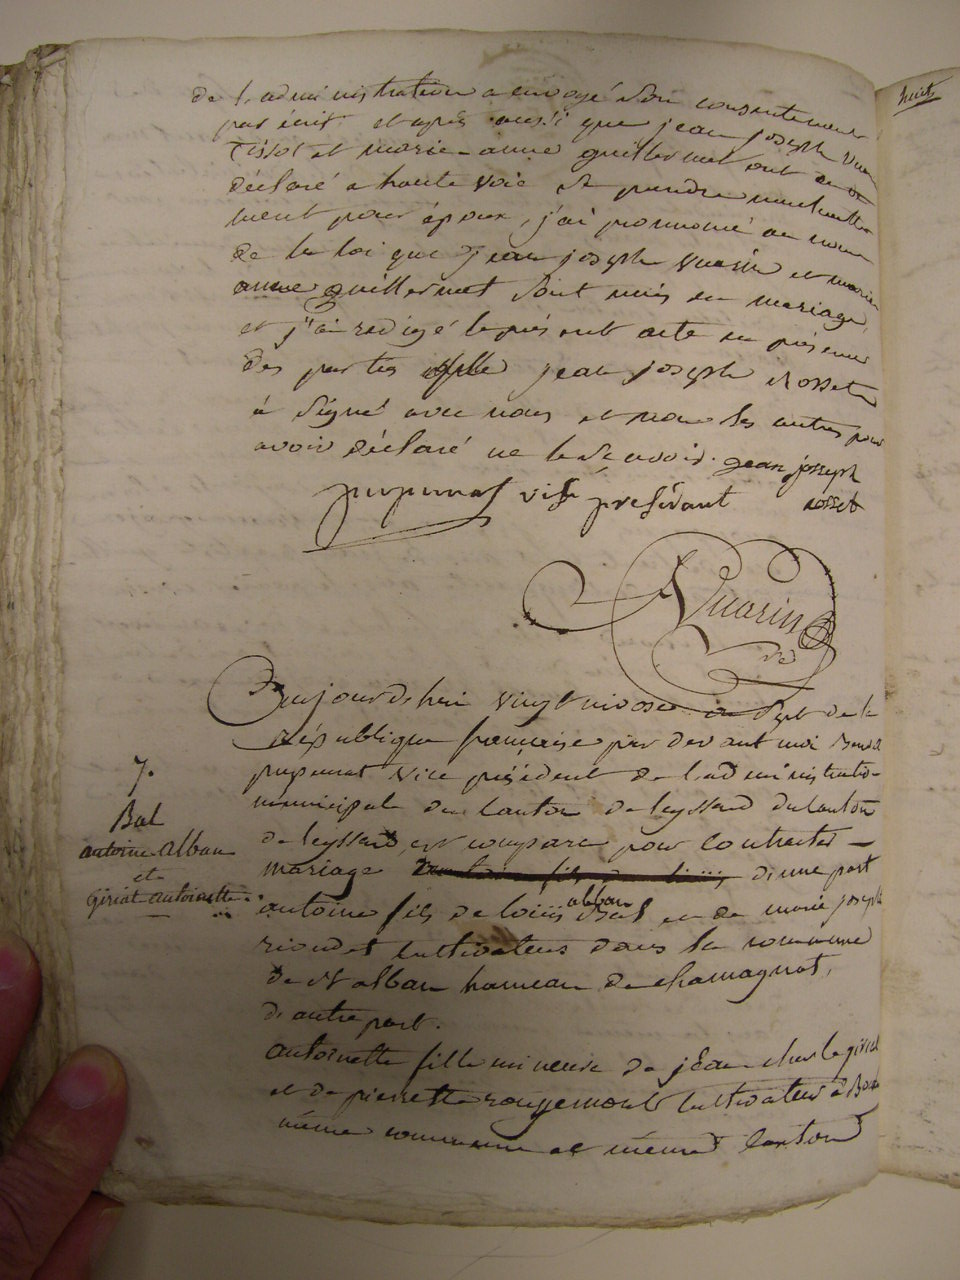 huit
de l'administration a envoyé son consentement
par écrit et après aussi que jean joseph
Tissot et marie-anne guillermet ont
déclaré a haute voix se prendre mutuelle
ment pour époux, j'ai prononcé au nom
de la loi que jean joseph et marie
anne guillermet sont unis en mariage
et j'ai redigé le présent acte en présence
des parties jean joseph Rosset
à signé avec nous et non les autres pour
avoir déclaré ne le savoir. jean joseph
rosset
pupunat vise presidant
Aujourdhui vingt nivose an sept de la
République francaise par devant moi
pupunat vice président de l'administratio-
municipal du canton de leyssard du canton
de leyssard, est comparu pour contracter -
mariage d'une part
antoine fils de louis alban Bal et de marie joseph
riondet cultivateur dans la commune
de st alban hameau de chamagnat,
d'autre part.
antoinette fille mineure de jean charle giriat
et de pierrette rougemont cultivateur à
même commune et même canton
7.
Bal
antoine alban
et
Giriat antoinette